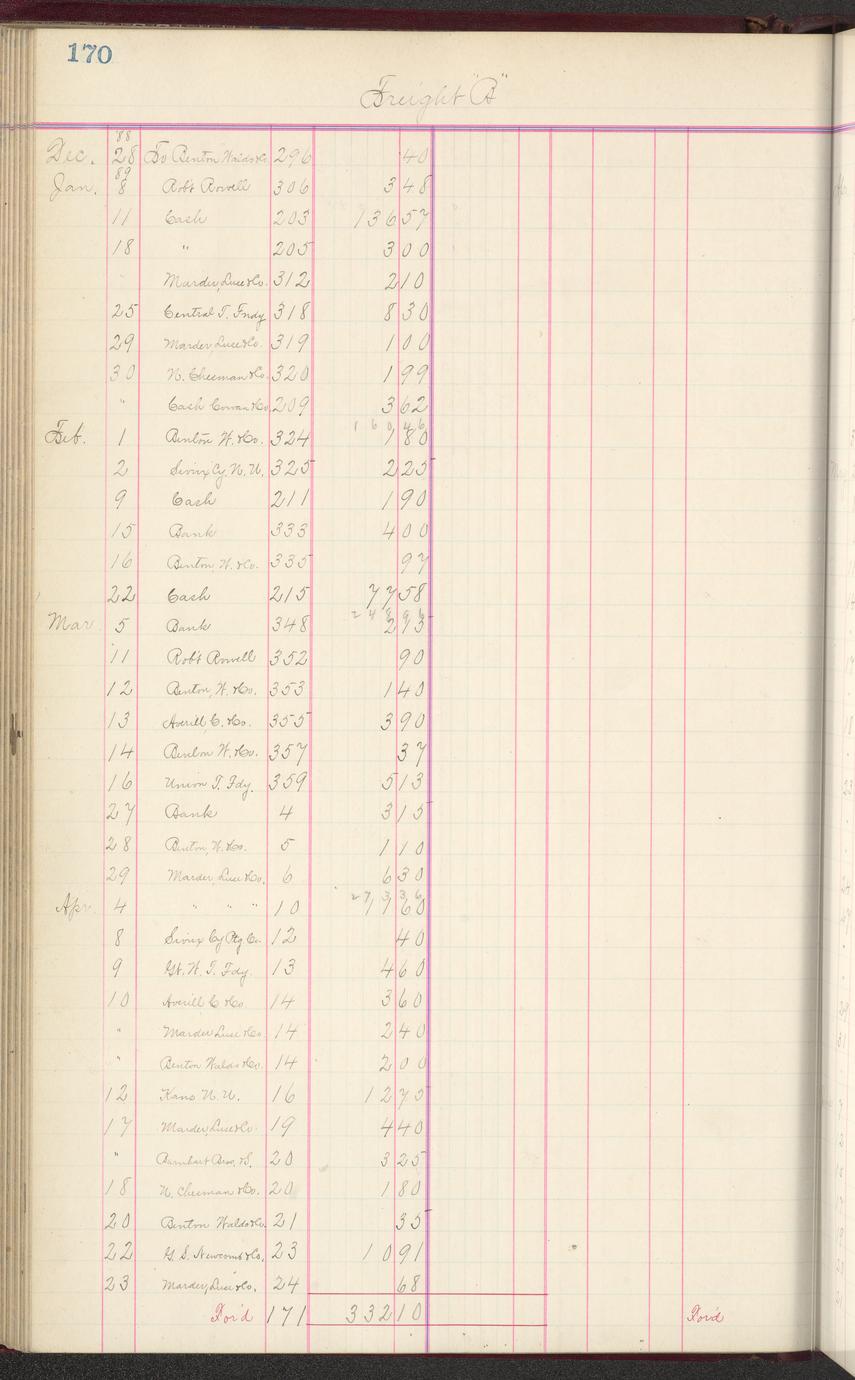 170
Freight "A"
'88
Dec. 28 To Benton Waldo & Co. 296 40
89
Jan. 8 Rob't Rowell 306 3 48
11 Cash 203 136 57
18 " 205 3 00
" Marder, Luse & Co. 312 2 10
25 Central T. Fndy 318 8 30
29 Marder Luse & Co. 319 1 00
30 N. Cheeman & Co. 320 1 99
" Cash Cowan & Co 209 3 62
160 46
Feb. 1 Benton W. & Co. 324 1 80
2 Sioux Cy. N. U. 325 2 25
9 Cash 211 1 90
15 Bank 333 4 00
16 Benton, W. & Co. 335 97
22 Cash 215 77 58
248 96
Mar. 5 Bank 348 2 93
11 Rob't Rowell 352 90
12 Benton, W. & Co. 353 1 40
13 Averill, C. & Co. 355 3 90
14 Benton W. & Co. 357 37
16 Union T. Fdy. 359 5 13
27 Bank 4 3 15
28 Benton, W. & Co. 5 1 10
29 Marder, Luse & Co. 6 6 30
Apr. 4 " " " 10 11 60
8 Sioux Cy Ptg Co. 12 40
9 Gt. W. T. Fdy. 13 4 60
10 Averill C & Co 14 3 60
" Marder Luse & Co 14 2 40
" Benton Waldo & Co. 14 2 00
12 Kans N. U. 16 12 75
17 Marder, Luse & Co. 19 4 40
" Barnhart Bros. & S. 20 3 25
18 N. Cheeman & Co. 20 1 80
20 Benton Waldo & Co. 21 35
22 G. S. Newcomb & Co. 23 10 91
23 Marder, Luse & Co. 24 68
For'd 171 332 10 For'd